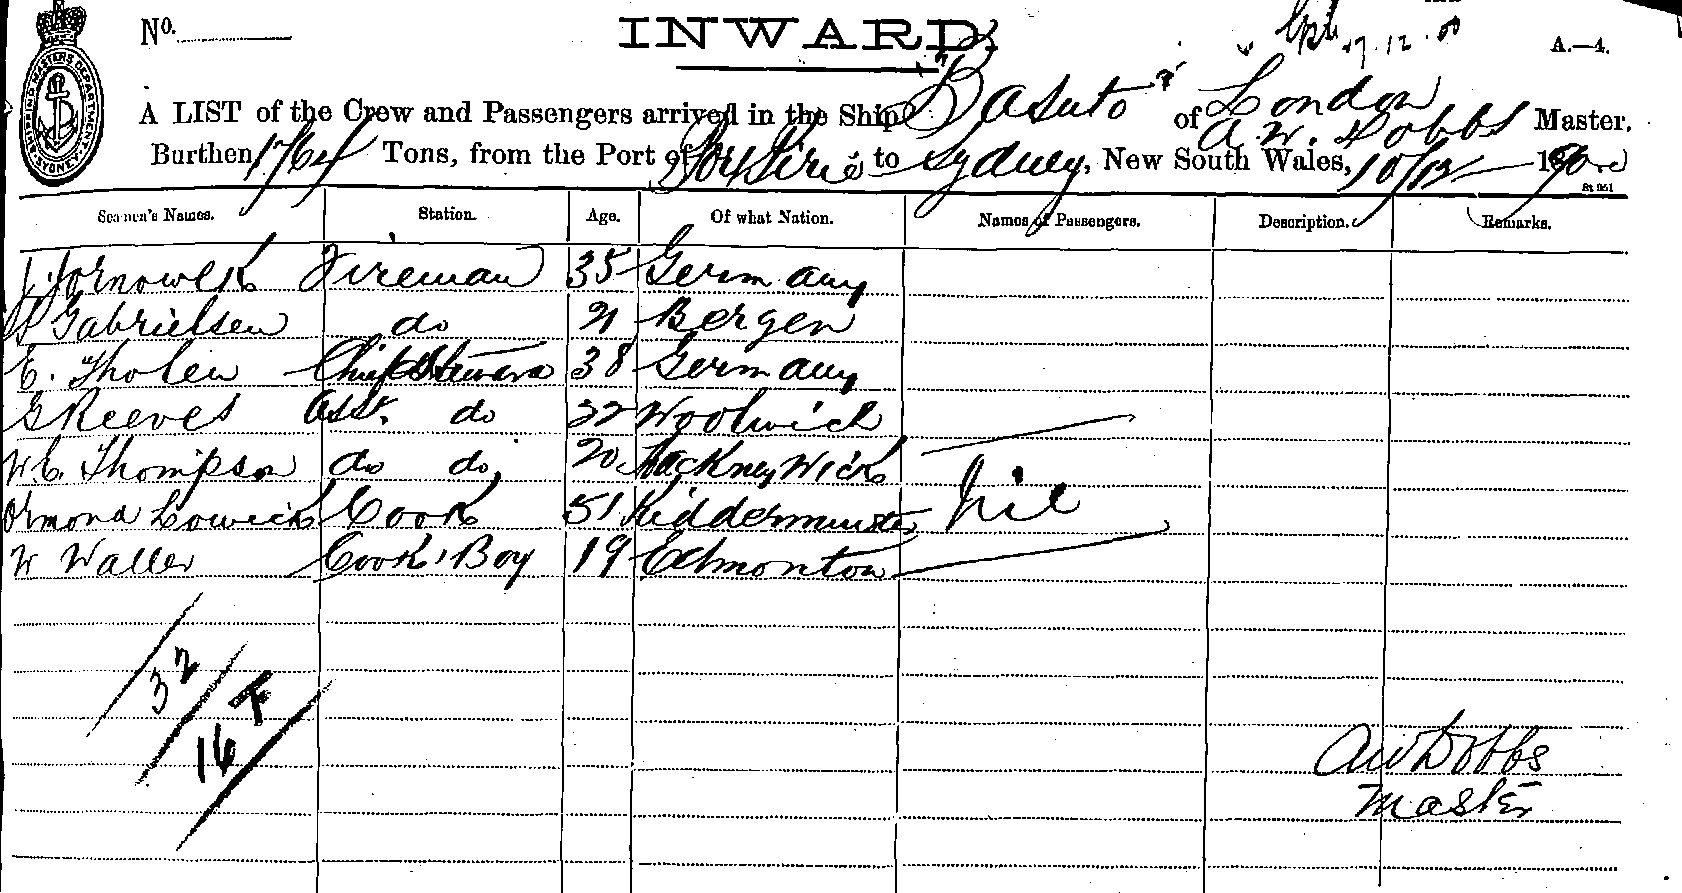 No.
INWARD.
17.12.00
A.—4.
A LIST of the Crew and Passengers arrived in the Ship "Basuto" of London
A. W. Dobbs Master.
Burthen 1764 Tons, from the Port of Port Pirie to Sydney, New South Wales, 10/12 1900
Seamen's Names. Station. Age. Of what Nation. Names of Passengers. Description. Remarks.
Fireman 35 Germany
Gabrielsen do 21 Bergen
E. Tholen Chief Steward 38 Germany
G Reeves Asst. do 22 Woolwich
W.E. Thompson do do 20 Hackney Wick
Ormond Lowick Cook 51 Kidderminster
Nil
W Waller Cook's Boy 19 Edmonton
32
16 F
AW Dobbs
Master